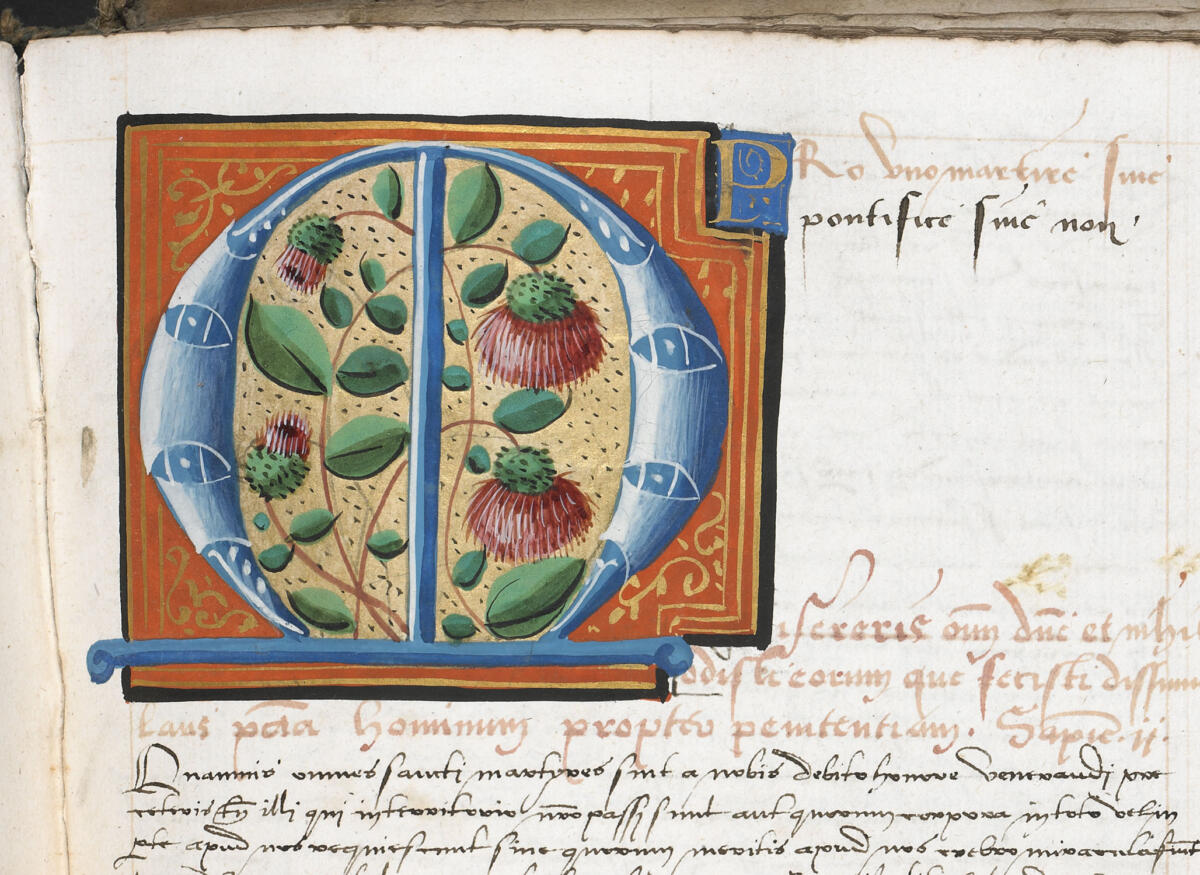 PRo vno martire siue
pontifice siue non
Misereris oīm dn̄e et nihil
odisti eorum que fecisti dissimu
lans pctā hominum propter penitentiam. Sapie. ij.
Quamuis omnes sancti martyres sint a nobis debito honore venerandi pre
ceteris tn̄ illi qui in territorio nr̄o passi sunt aut quorum corpora in toto vel in
pte apud nos requiescunt siue quorum meritis apud nos crebro miracula fiunt